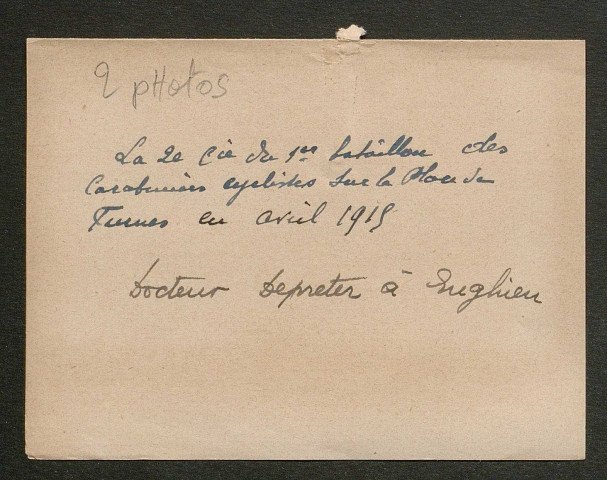 2 photos
La 2e Cie du 1er bataillon des
Carabiniers cyclistes sur la Place de
Furnes en avril 1915
Docteur Depreter à Enghien